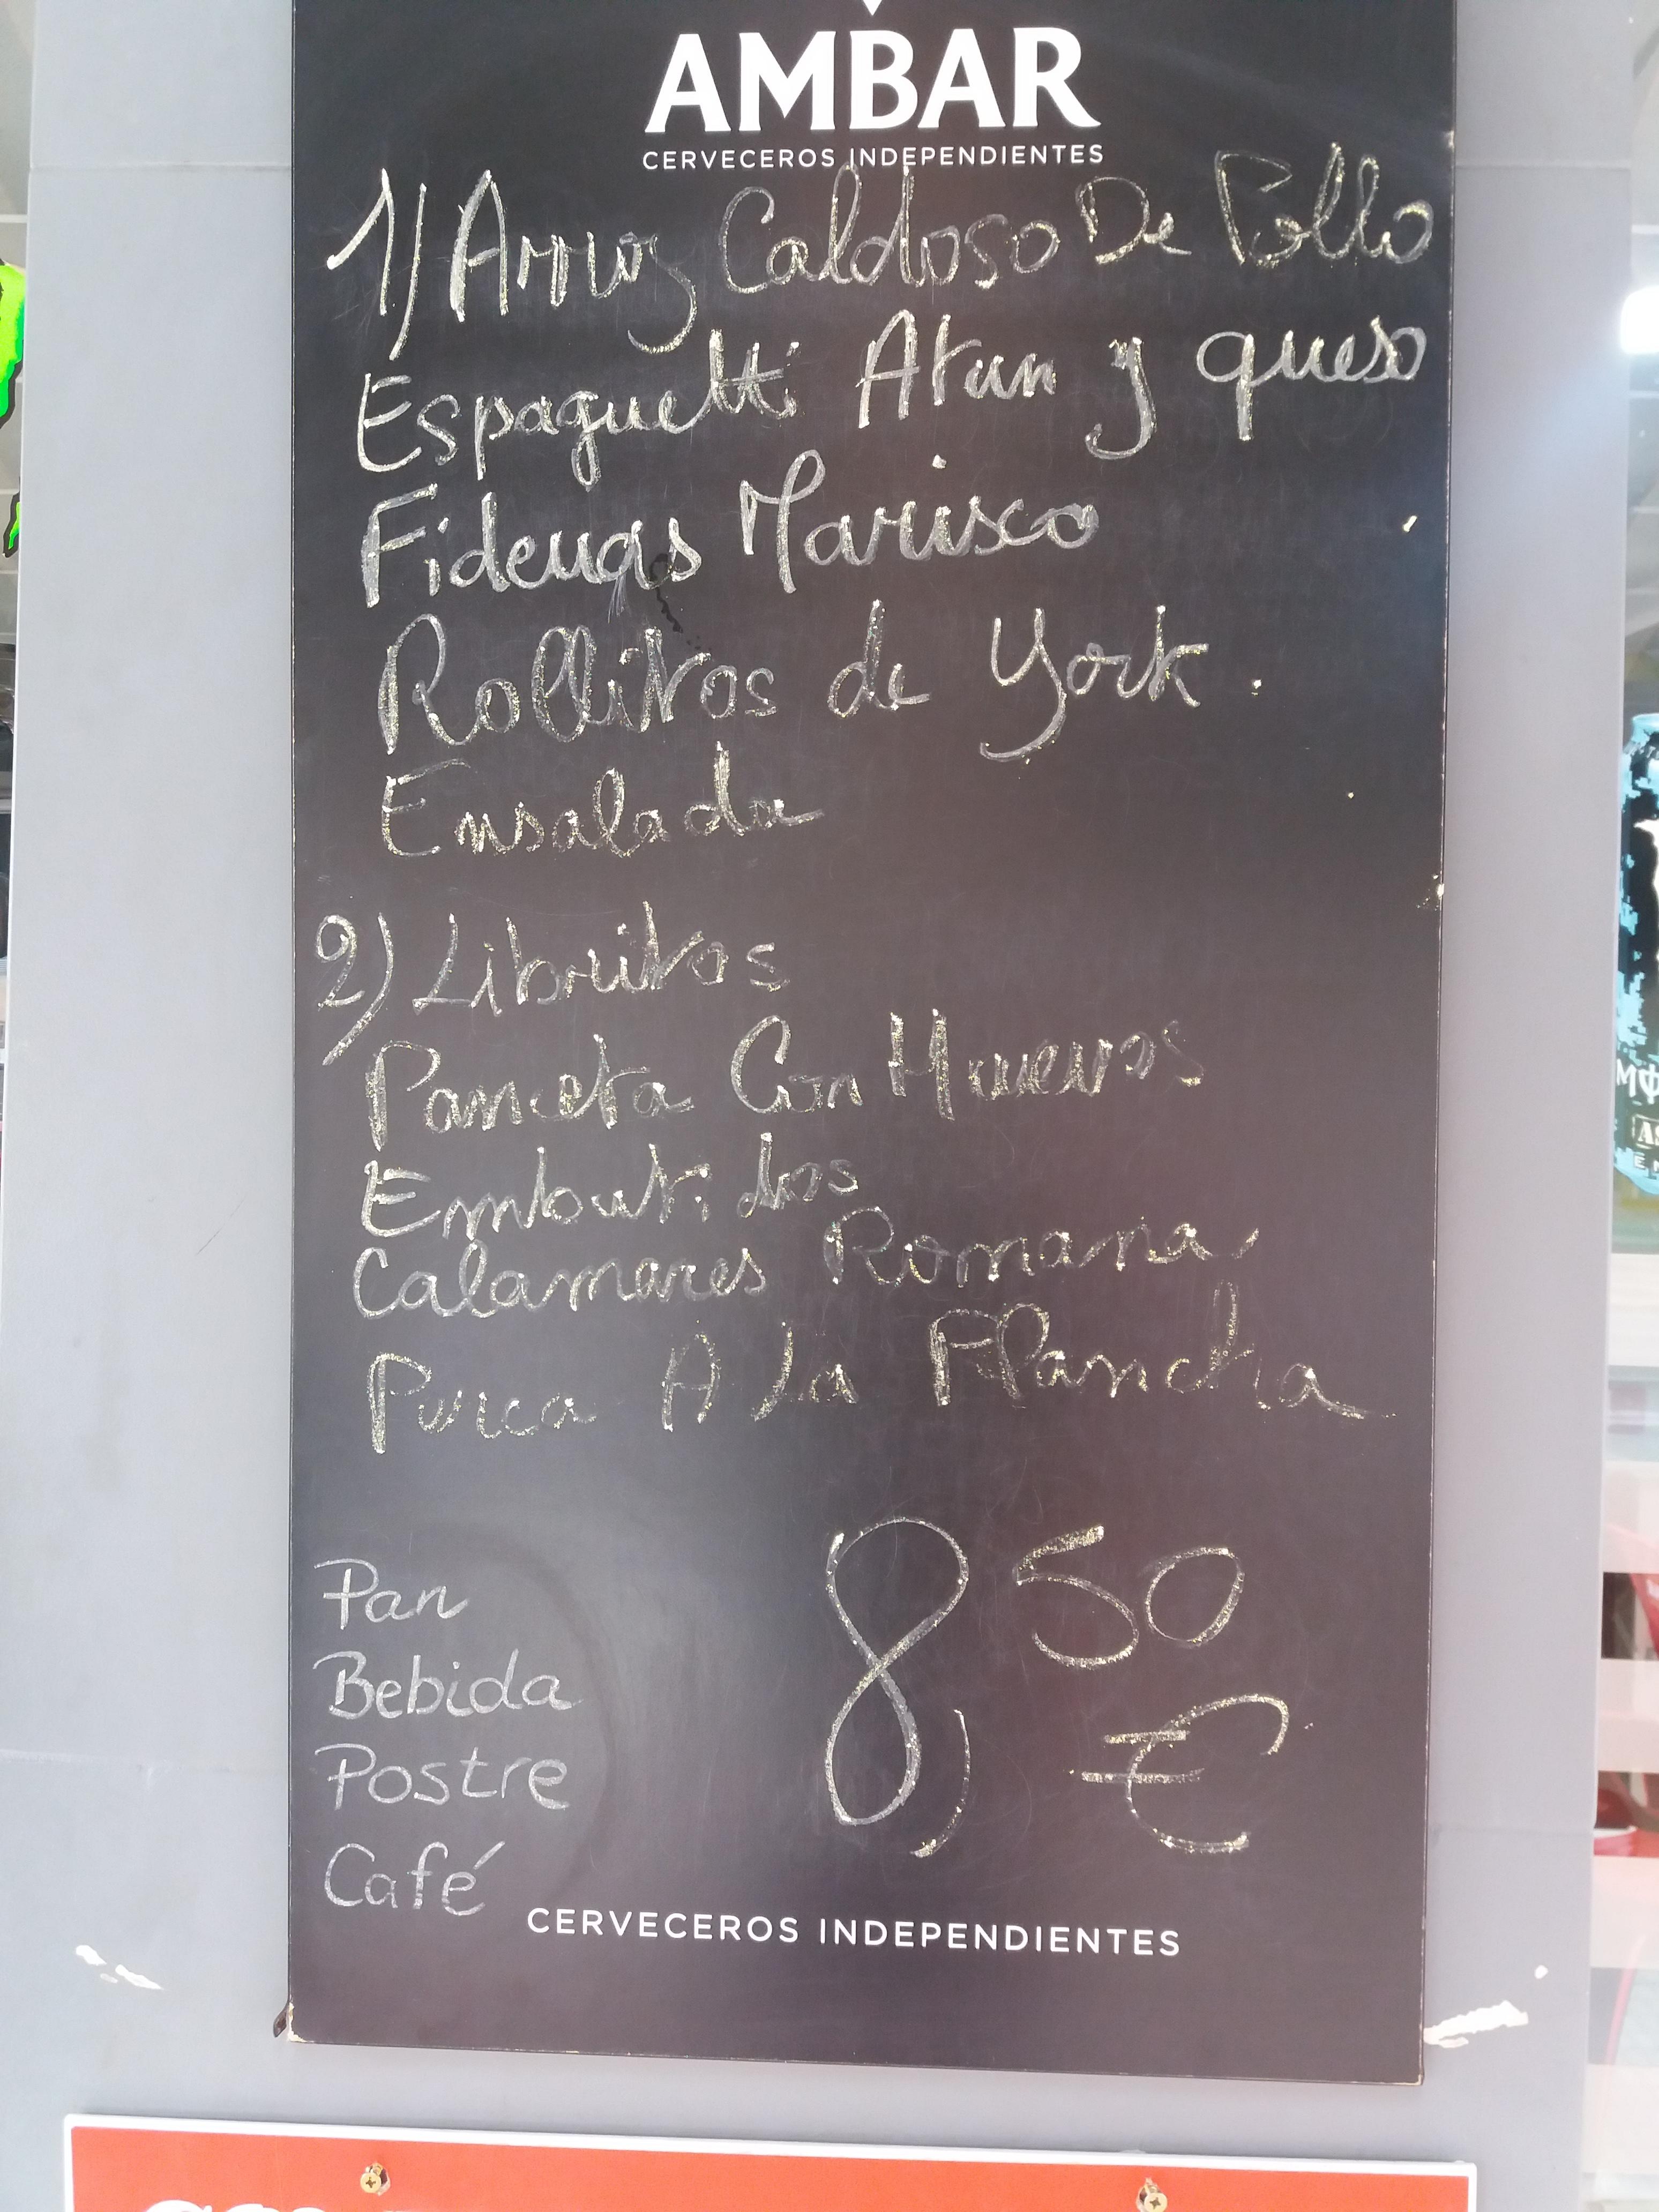 AMBAR
CERVECEROS INDEPENDIENTES
1) Arroz Caldoso De Pollo
Espaguetti Atun y queso
Fideuas Marisco
Rollitos de York.
Ensalada
2) Libritos
Panceta Con Huevos
Embutidos
Calamares Romana
Perca A La Plancha
8,50 €
Pan
Bebida
Postre
Café
CERVECEROS INDEPENDIENTES